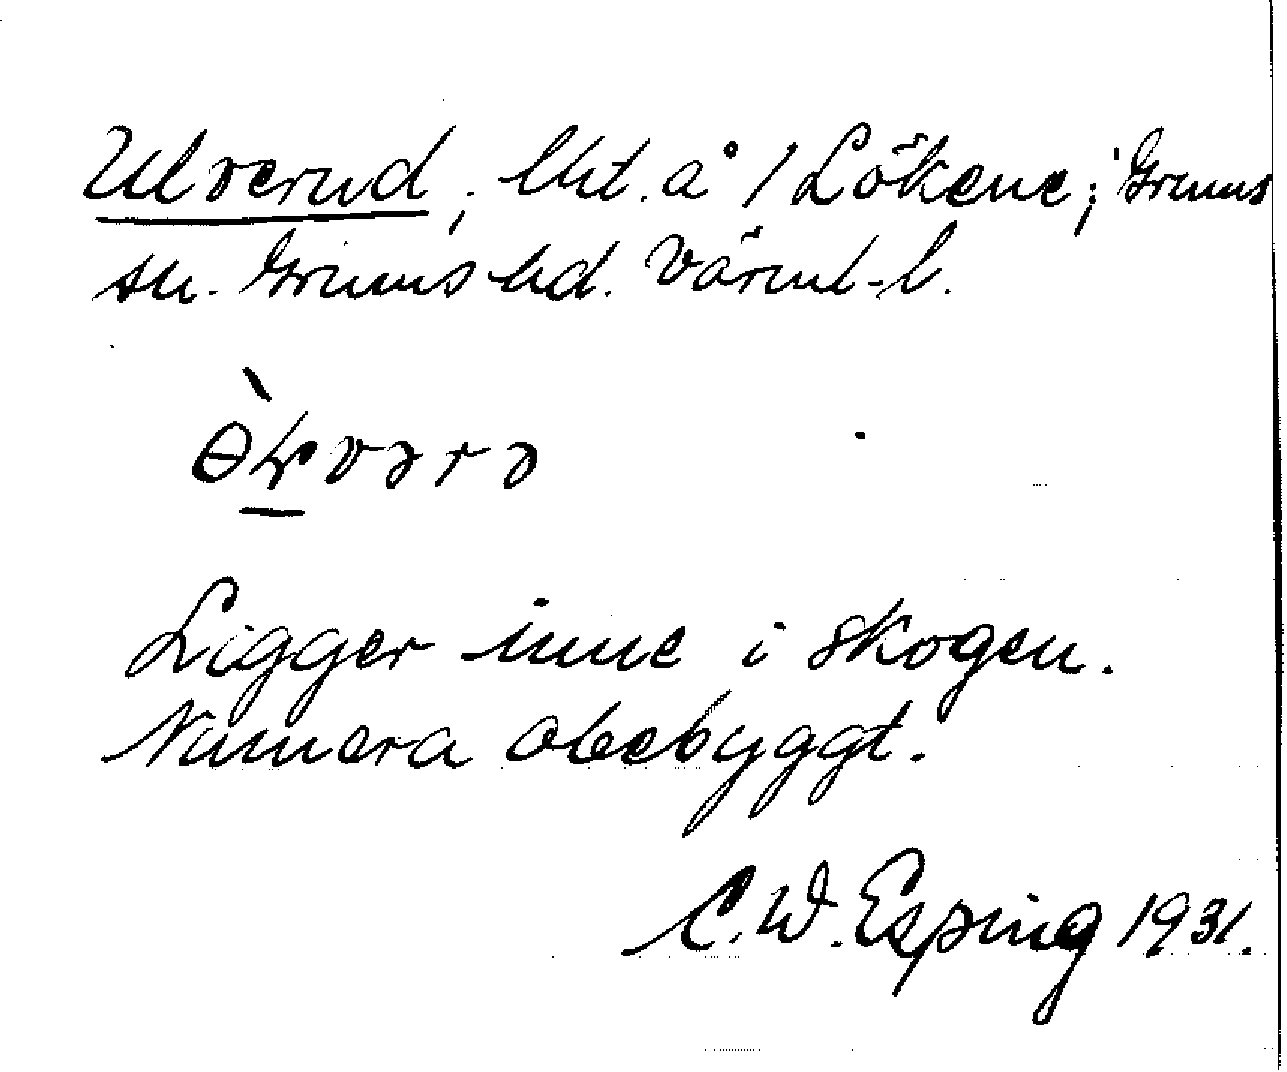 Ulverud, lht. å 1 Lökene; Grums
sn. Grums hd. Värml-l.
Ligger inne i skogen.
Numera obebyggt.
C. W. Esping 1931.